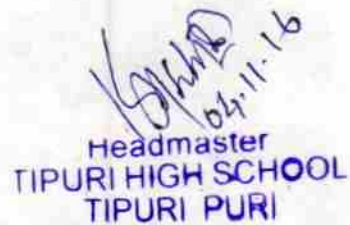 04.11.16
Headmaster
TIPURI HIGH SCHOOL
TIPURI PURI